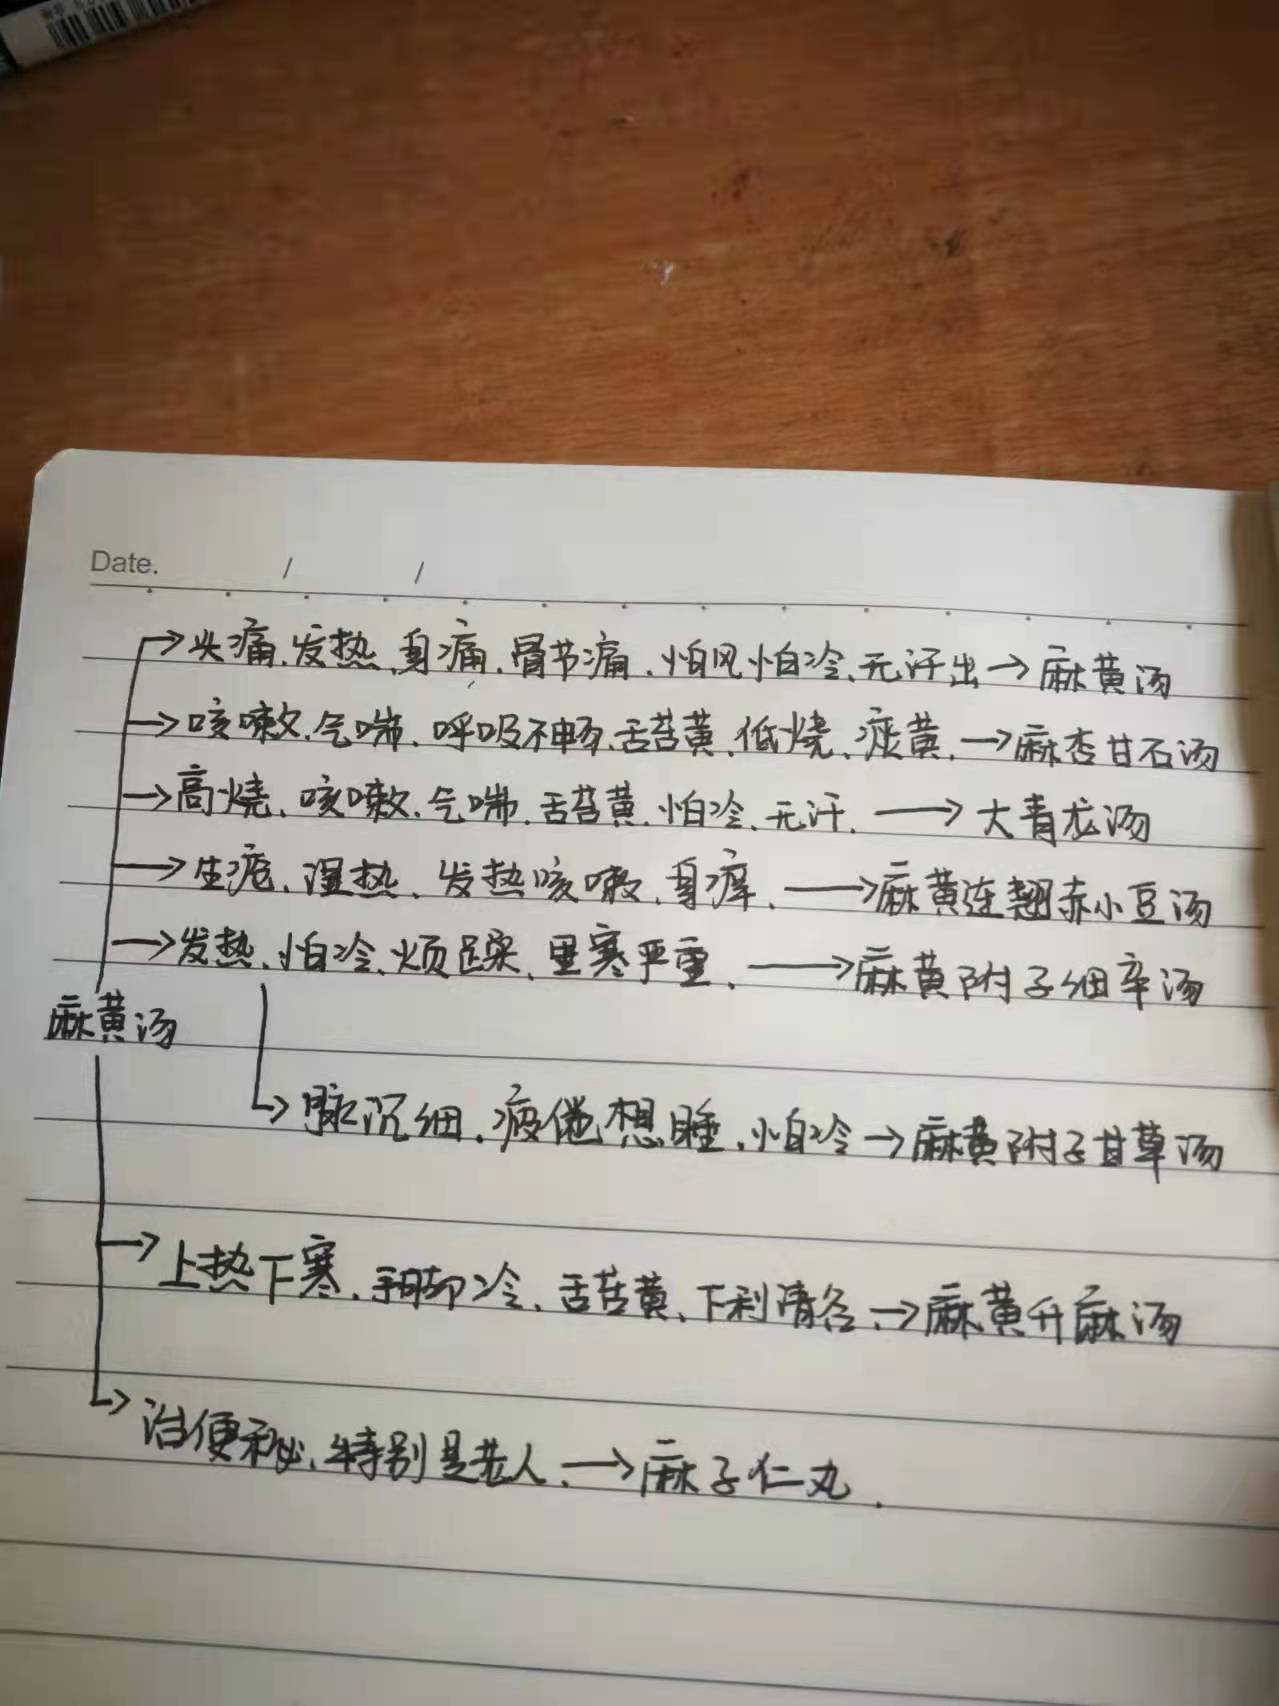 Date. / /
→头痛、发热、身痛、骨节痛、怕风怕冷、无汗出→麻黄汤
→咳嗽、气喘、呼吸不畅、舌苔黄、低烧、痰黄、→麻杏甘石汤
→高烧、咳嗽、气喘、舌苔黄、怕冷、无汗、→大青龙汤
→生疮、湿热、发热咳嗽、身痒、→麻黄连翘赤小豆汤
→发热、怕冷、烦躁、里寒严重、→麻黄附子细辛汤
麻黄汤
→脉沉细、疲倦想睡、怕冷→麻黄附子甘草汤
→上热下寒、手脚冷、舌苔黄、下利清谷、→麻黄升麻汤
→治便秘、特别是老人、→麻子仁丸.